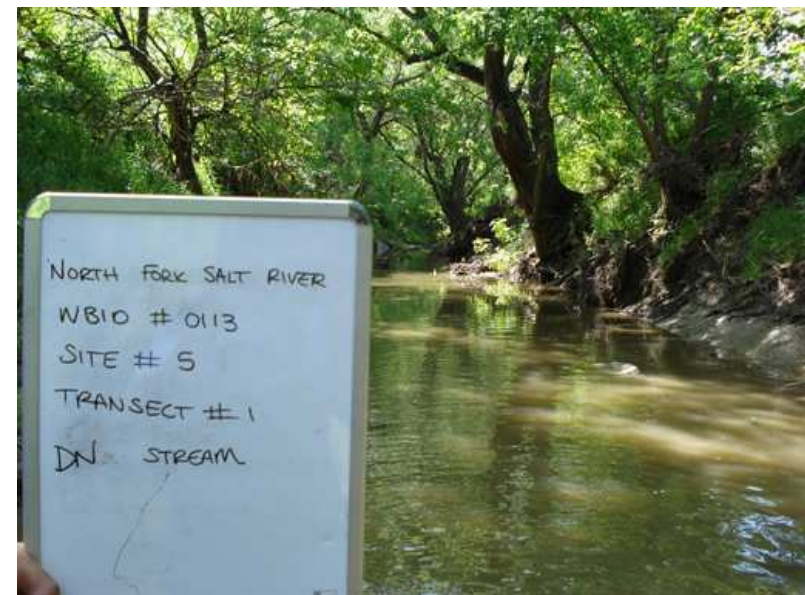 NORTH FORK SALT RIVER
WBID # 0113
SITE # 5
TRANSECT # 1
DN STREAM